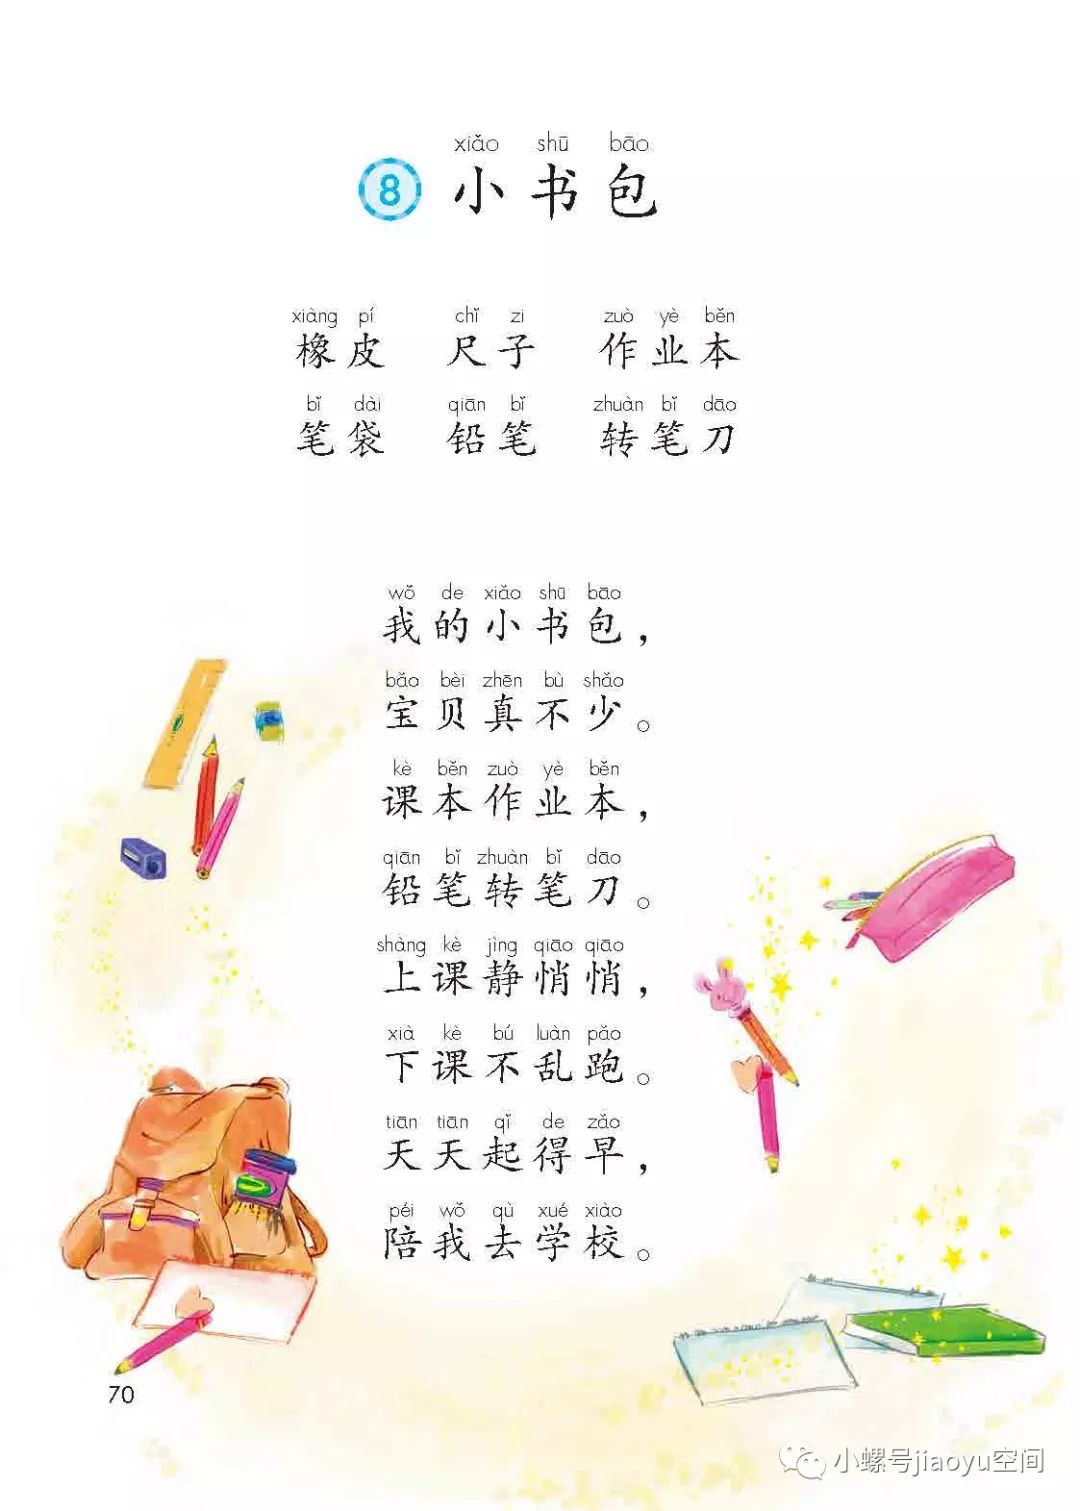 xiǎo shū bāo
8 小书包
xiàng pí chǐ zi zuò yè běn
橡皮 尺子 作业本
bǐ dài qiān bǐ zhuàn bǐ dāo
笔袋 铅笔 转笔刀
wǒ de xiǎo shū bāo
我的小书包，
bǎo bèi zhēn bù shǎo
宝贝真不少。
kè běn zuò yè běn
课本作业本，
qiān bǐ zhuàn bǐ dāo
铅笔转笔刀。
shàng kè jìng qiāo qiāo
上课静悄悄，
xià kè bú luàn pǎo
下课不乱跑。
tiān tiān qǐ de zǎo
天天起得早，
péi wǒ qù xué xiào
陪我去学校。
70
小螺号jiaoyu空间